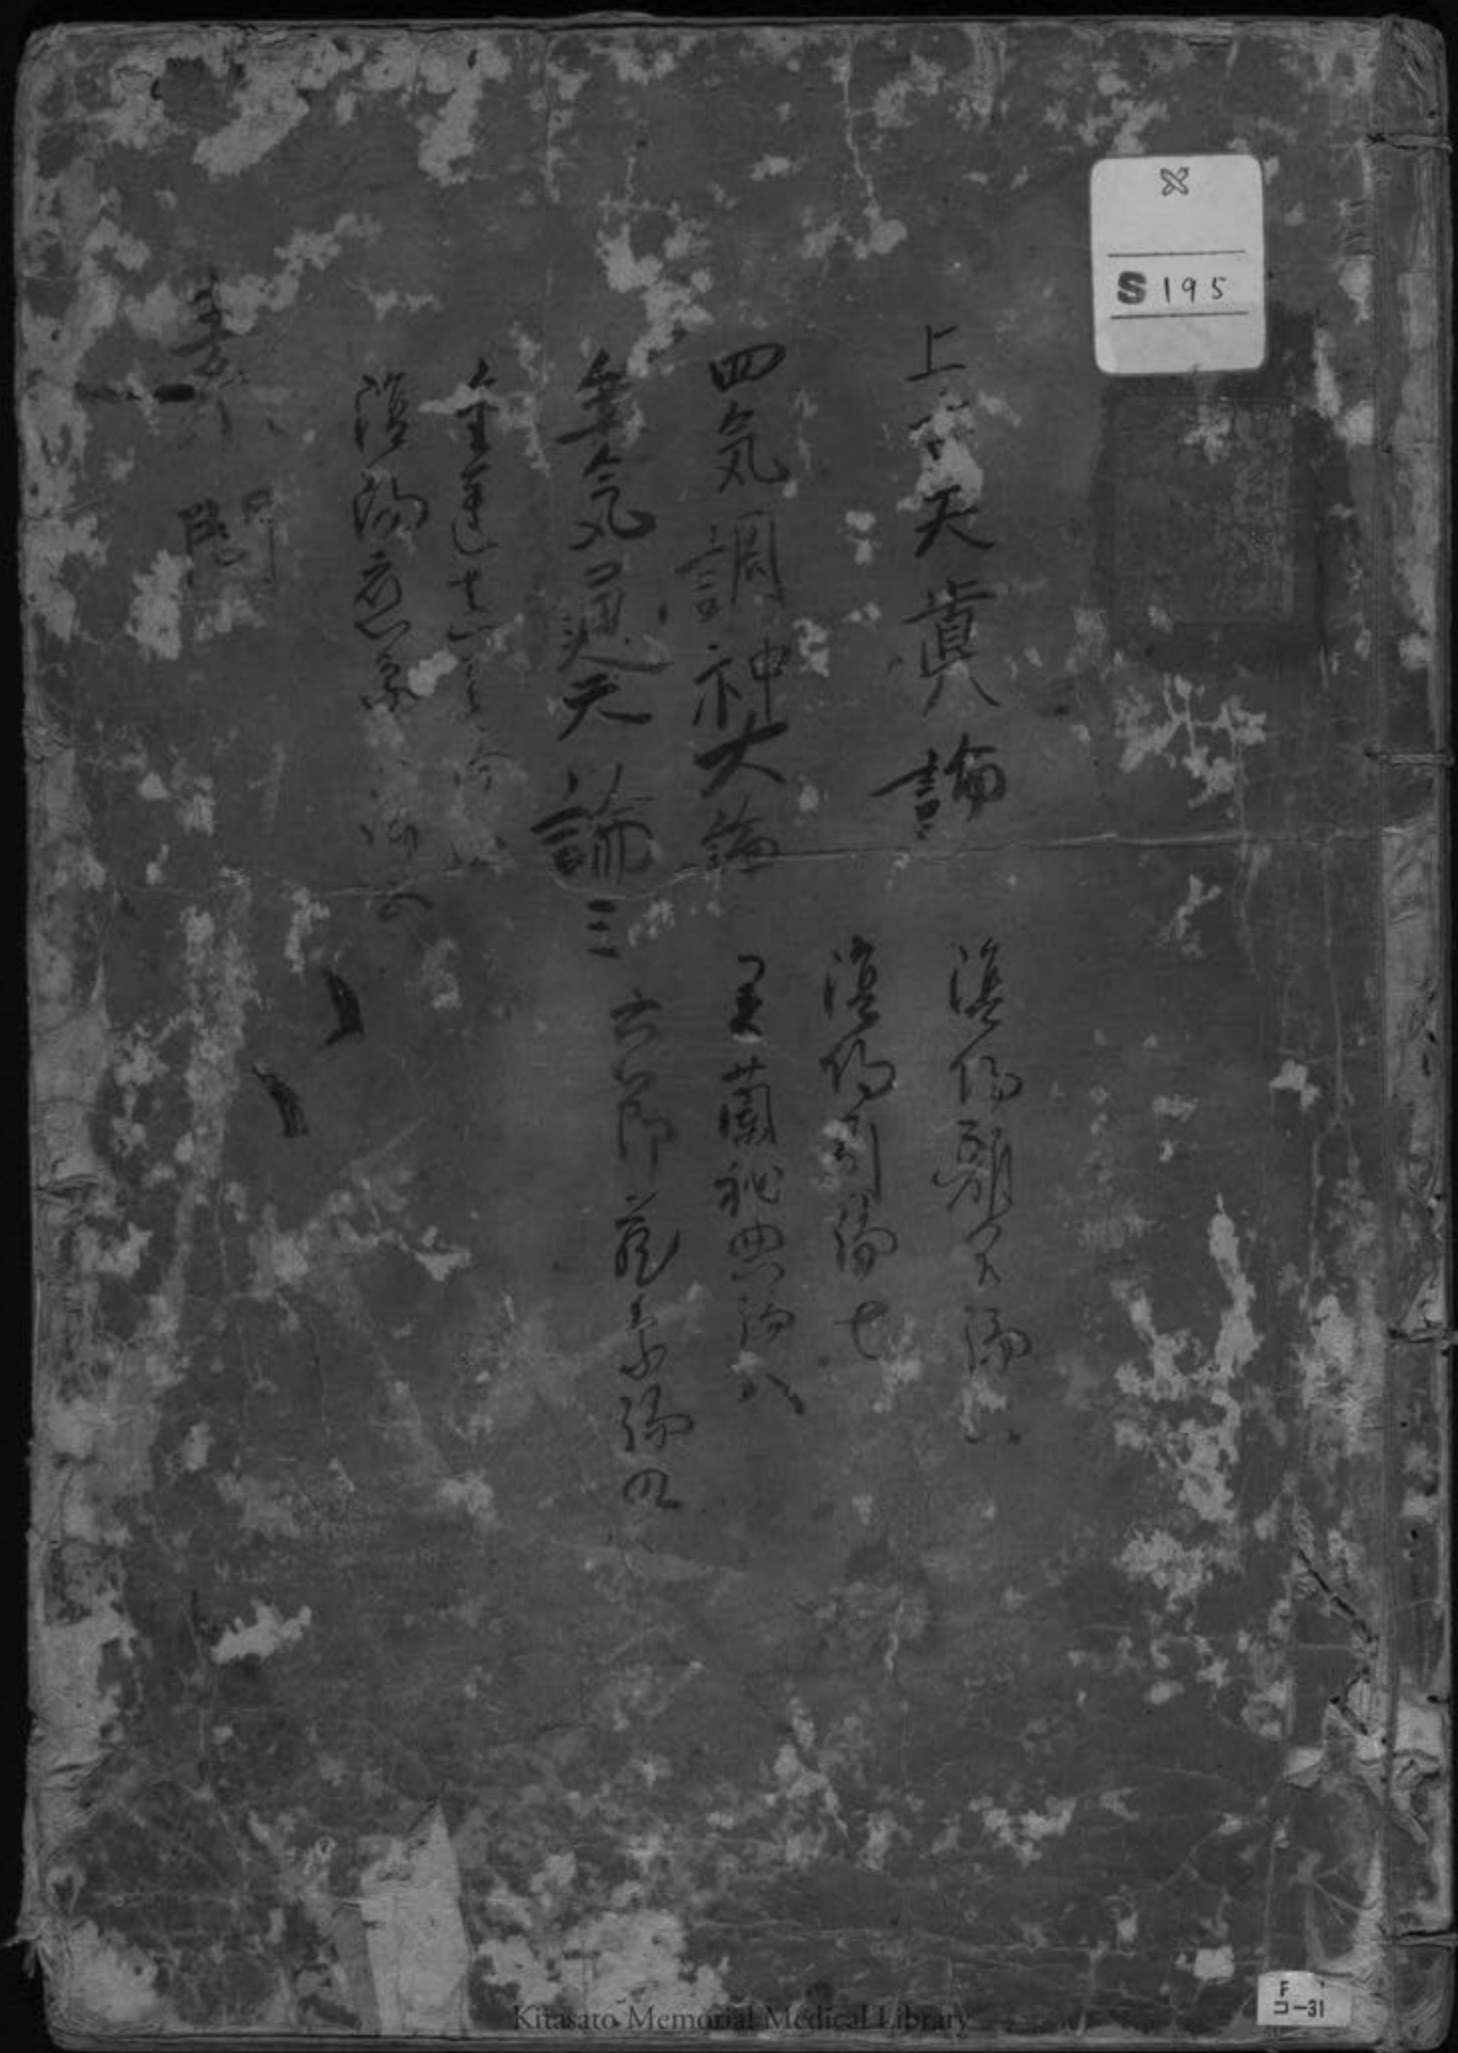 S 195
上古天眞論
四気調神大論
生気通天論三
金匱真言論
陰陽應象論五
素問
陰陽離合論六
陰陽別論七
靈蘭秘典論八
六節藏象論九
F
コ-31
Kitasato Memorial Medical Library